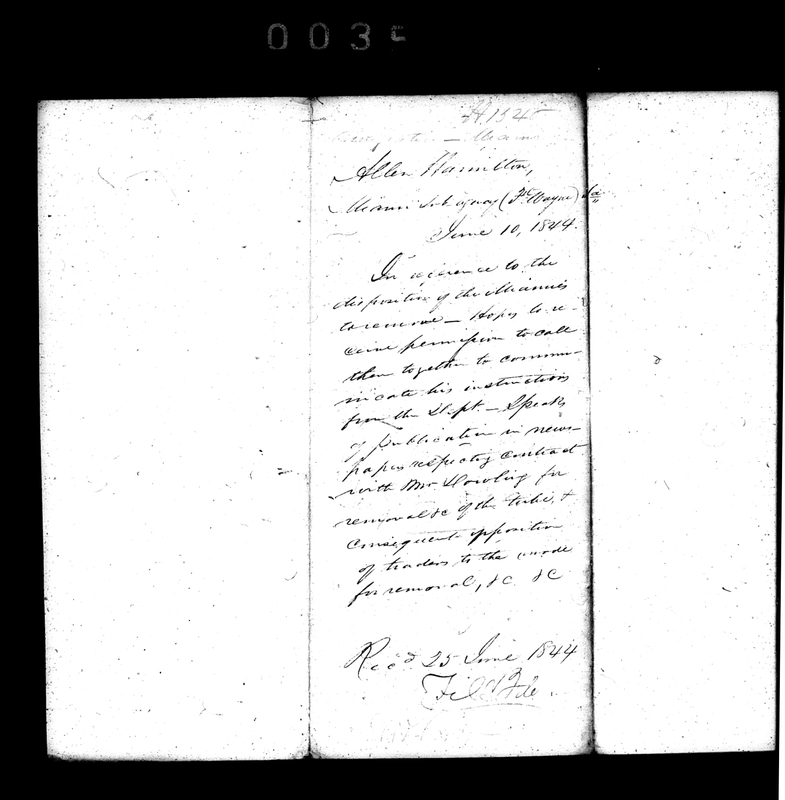 0035
H1545
Emigration — Miami
Allen Hamilton,
Miami Sub agency (Ft. Wayne) Ia
June 10, 1844.
In reference to the
disposition of the Miamies
to remove — Hopes to re-
ceive permission to call
them together to commu-
nicate his instructions
from the Dept. — Speaks
of publication in news-
papers respecting contract
with Mr Dowling for
removal &c of the tribe, &
consequent opposition
of traders to the mode
for removal, &c. &c
Rec'd 25 June 1844
File